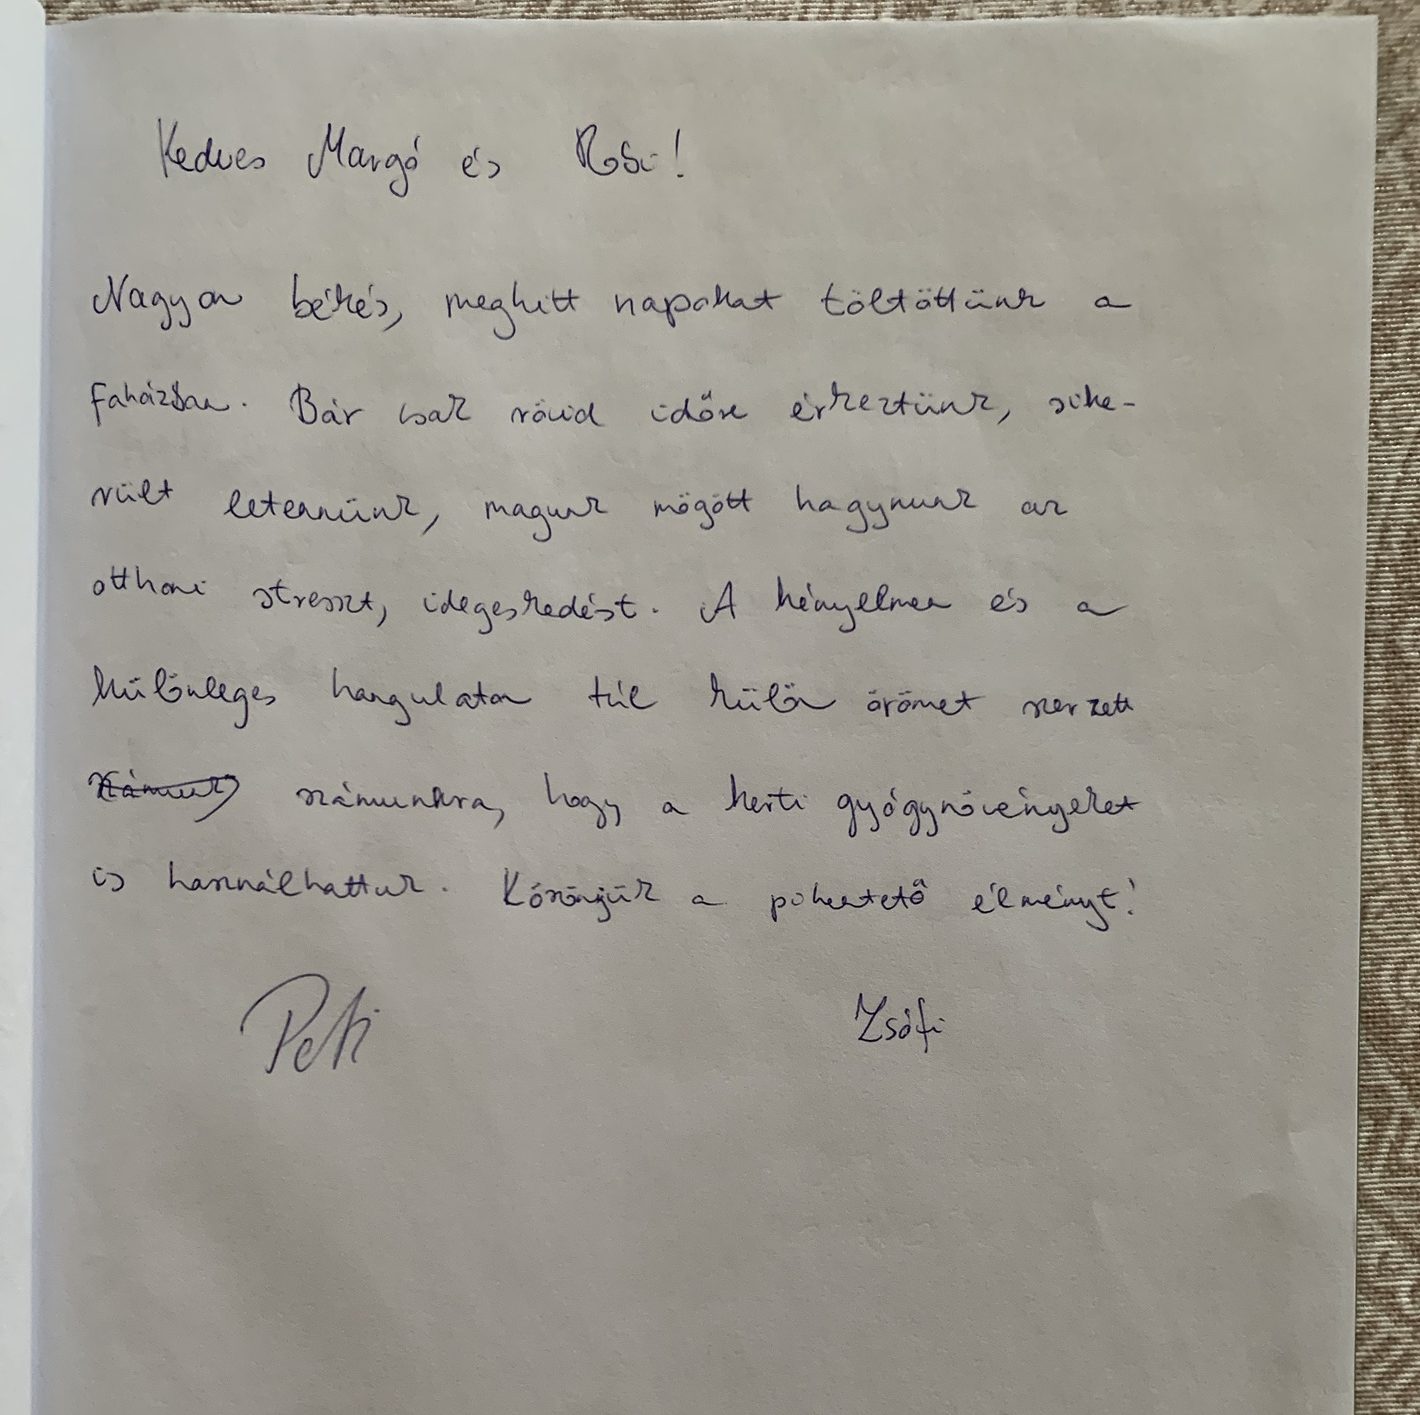 Kedves Margó és Robi!
Nagyon békés, meghitt napokat töltöttünk a
faházban. Bár csak rövid időre érkeztünk, sike-
rült letennünk, magunk mögött hagynunk az
otthoni stresszt, idegeskedést. A kényelmen és a
különleges hangulaton túl külön örömet szerzett
számunkra, hogy a kerti gyógynövényeket
is használhattuk. Köszönjük a pihentető élményt!
Peti Zsófi